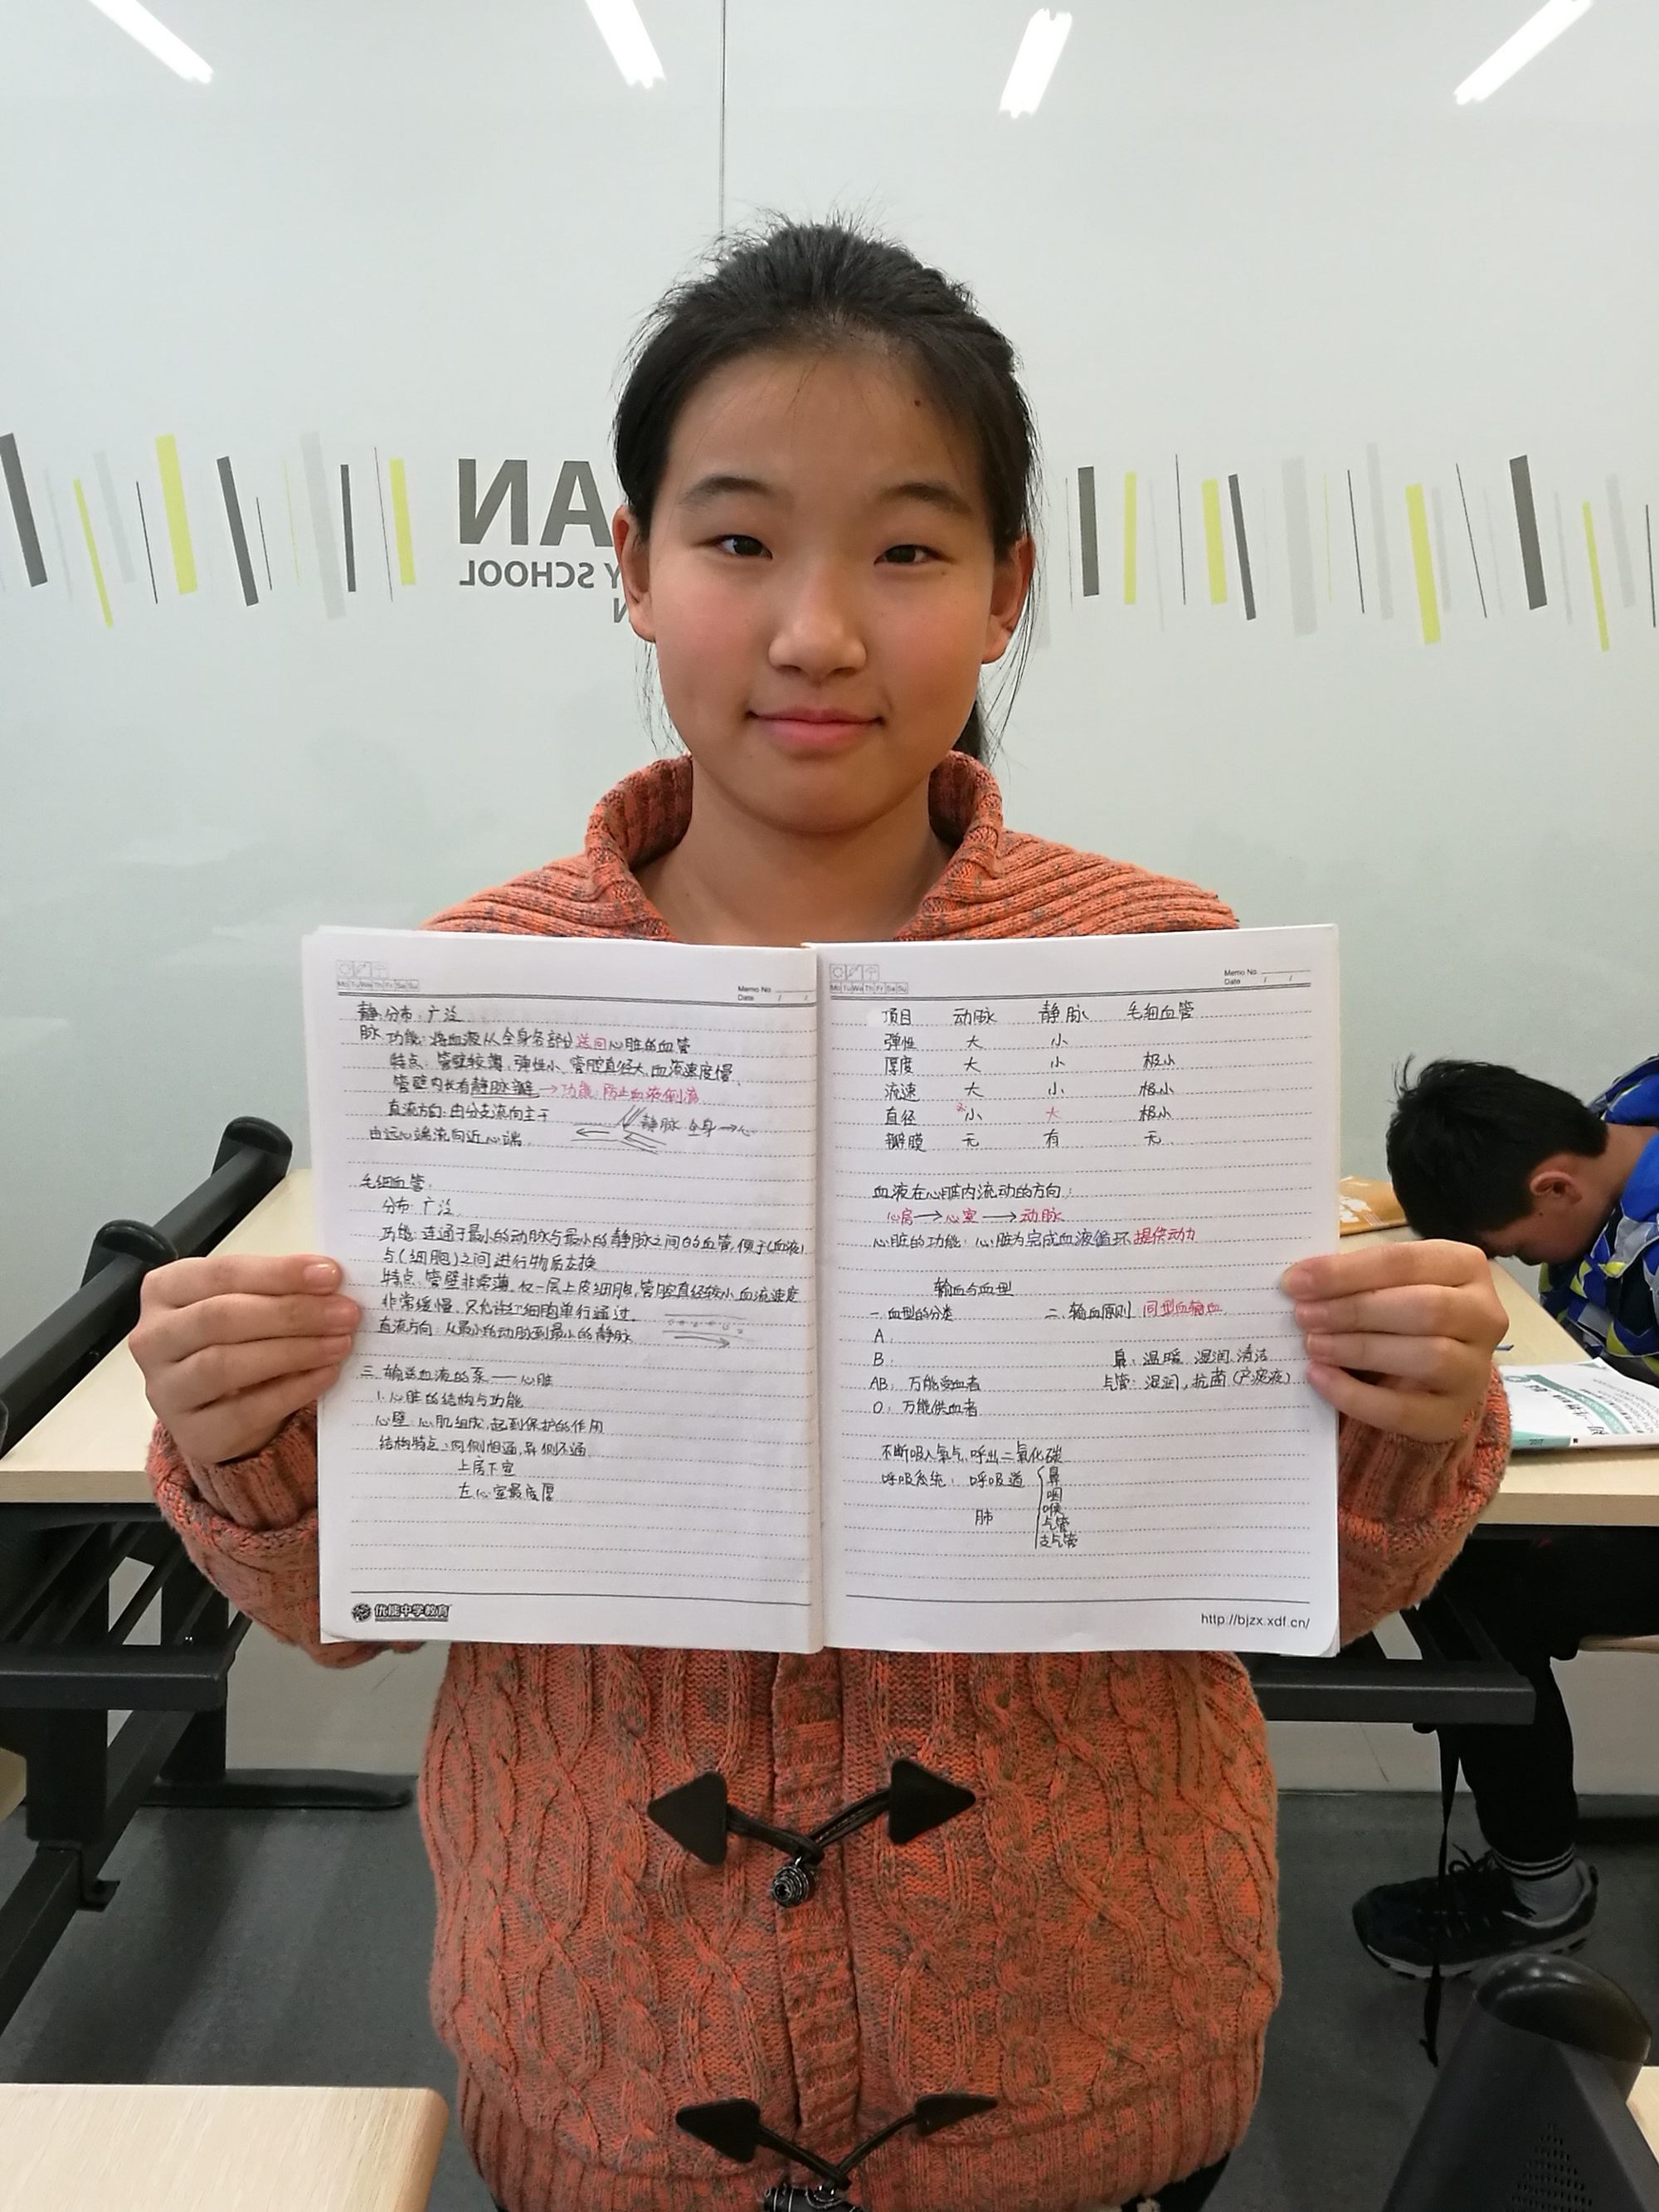 AN
Y SCHOOL
N
Mo Tu We Th Fr Sa Su
Memo No.
Date / /
静 分布:广泛
脉 功能:将血液从全身各部分送回心脏的血管
特点:管壁较薄,弹性小,管腔直径大,血流速度慢,
管壁内长有静脉瓣 →功能:防止血液倒流
直流方向:由分支流向主干
静脉 全身→心
由远心端流向近心端
毛细血管:
分布:广泛
功能:连通于最小的动脉与最小的静脉之间的血管,便于(血液)
与(细胞)之间进行物质交换
特点:管壁非常薄,仅一层上皮细胞,管腔直径较小,血流速度
非常缓慢,只允许红细胞单行通过.
直流方向:从最小的动脉到最小的静脉
三.输送血液的泵——心脏
1.心脏的结构与功能
心壁:心肌组成,起到保护的作用
结构特点:同侧相通,异侧不通
上房下室
左心室最度厚
优能中学教育
Mo Tu We Th Fr Sa Su
Memo No.
Date / /
项目 动脉 静脉 毛细血管
弹性 大 小
厚度 大 小 极小
流速 大 小 极小
直径 小 大 极小
瓣膜 无 有 无
血液在心脏内流动的方向:
心房→心室→动脉
心脏的功能:心脏为完成血液循环提供动力
输血与血型
一.血型的分类 二.输血原则 同型血输血
A:
B: 鼻:温暖,湿润,清洁
AB:万能受血者 气管:湿润,抗菌(产痰液)
O:万能供血者
不断吸入氧气,呼出二氧化碳
呼吸系统:呼吸道 鼻
咽
肺 喉
气管
支气管
http://bjzx.xdf.cn/